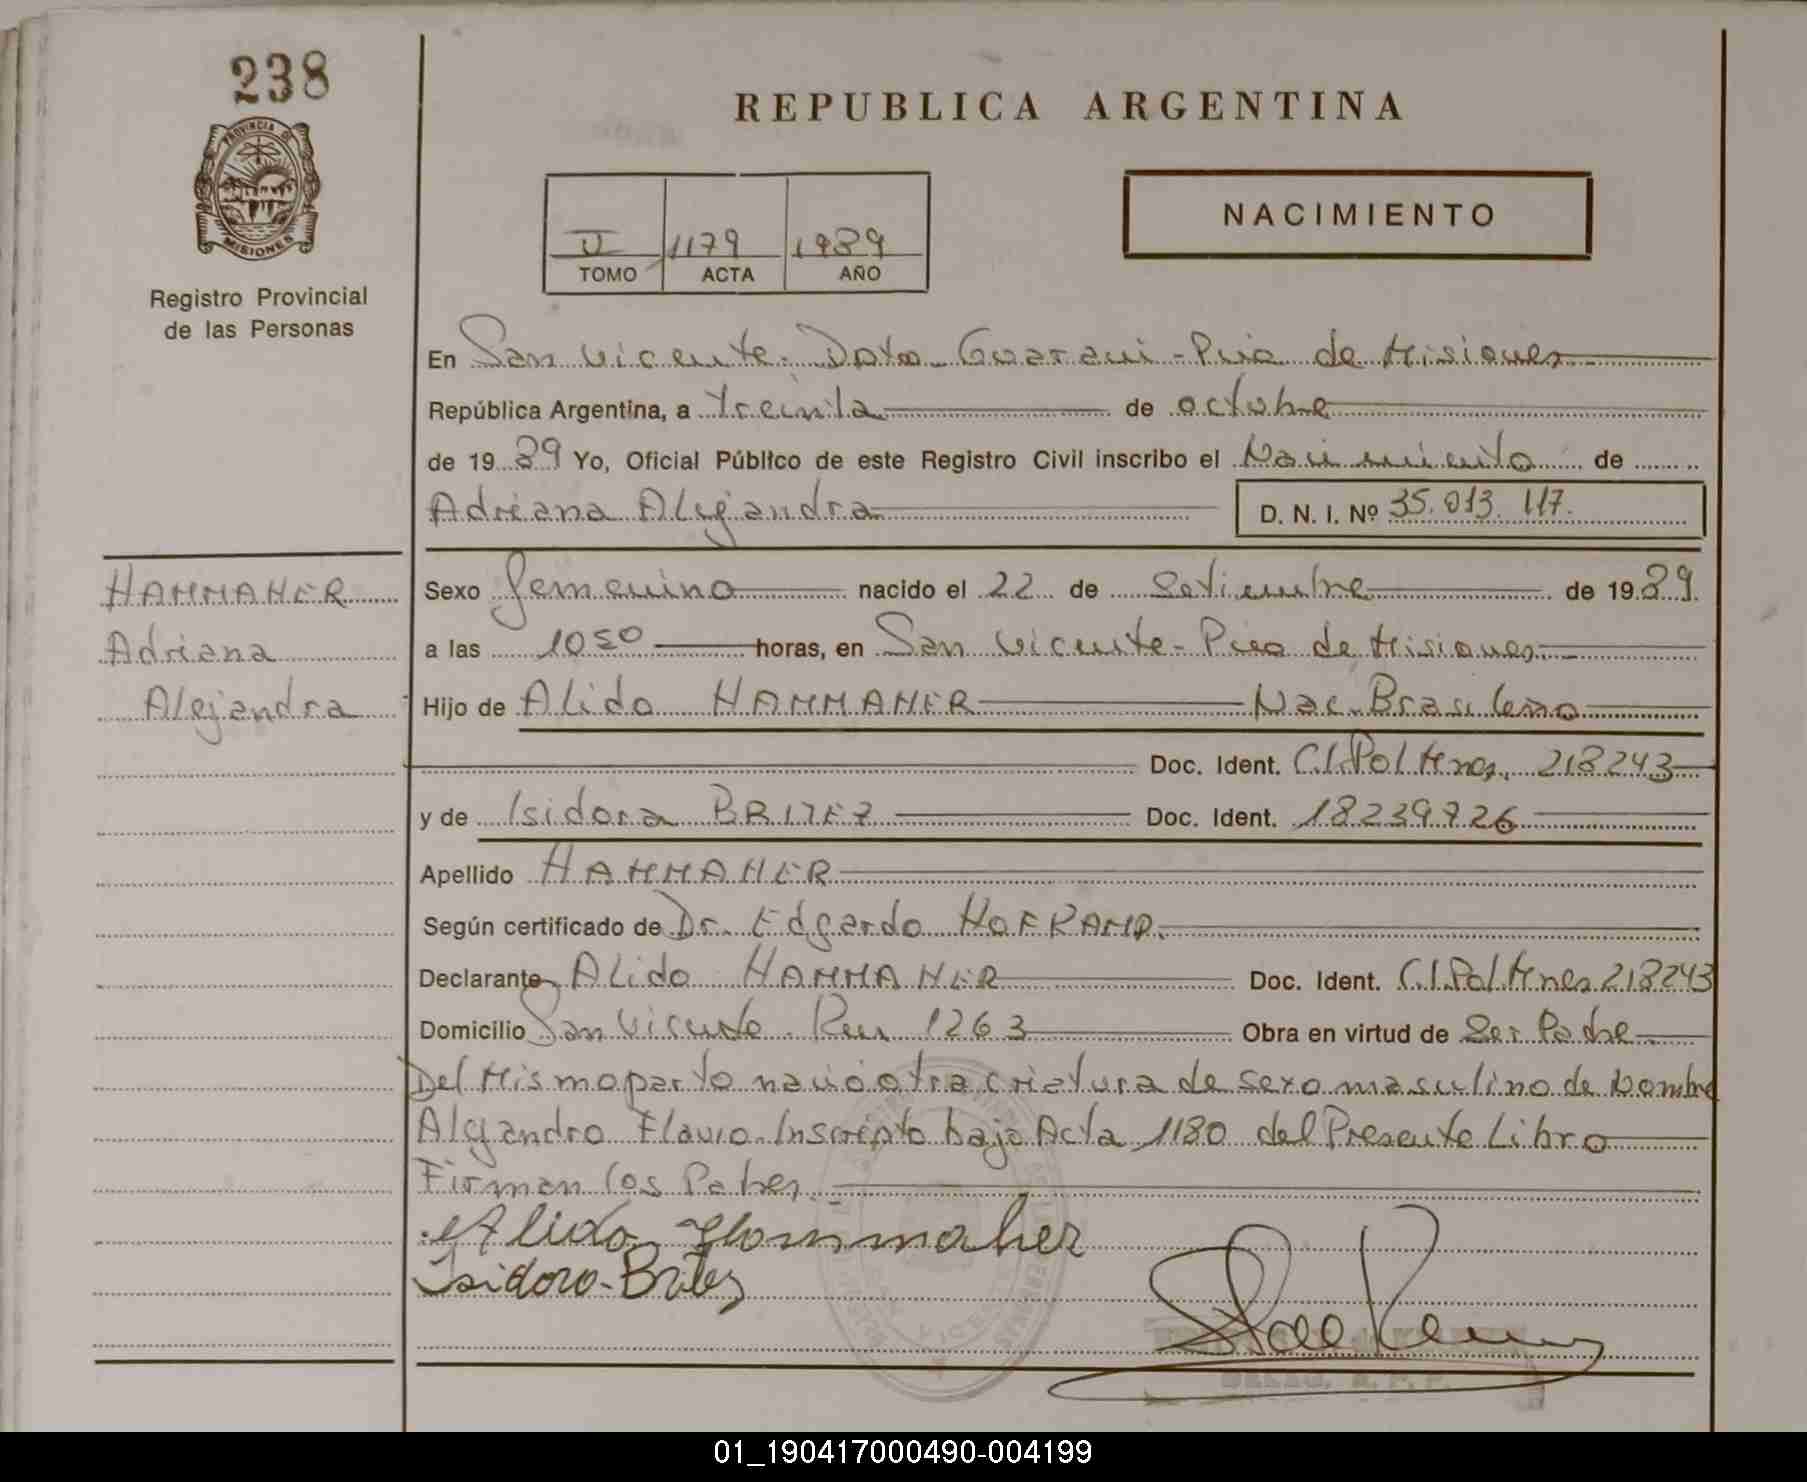 238
PROVINCIA DE
MISIONES
Registro Provincial
de las Personas
REPUBLICA ARGENTINA
II 1179 1989
TOMO ACTA AÑO
NACIMIENTO
En San Vicente. Dpto. Guarani - Pcia de Misiones
República Argentina, a treinta de octubre
de 1989 Yo, Oficial Público de este Registro Civil inscribo el Nacimiento de
Adriana Alejandra D. N. I. Nº 35.013.117.
HAMMAHER
Adriana
Alejandra
Sexo femenino nacido el 22 de Setiembre de 1989.
a las 1050 horas, en San Vicente - Pcia de Misiones
Hijo de Alido HAMMAHER Nac. Brasileño
Doc. Ident. C.I.Pol Mnes. 218243
y de Isidora BRITEZ Doc. Ident. 18239726
Apellido HAMMAHER
Según certificado de Dr. Edgardo HOFKAMP.
Declarante Alido HAMMAHER Doc. Ident. C.I.Pol Mnes 218243
Domicilio San Vicente. 1263 Obra en virtud de Ser Padre
Del Mismo parto nació otra criatura de sexo masculino de Nombre
Alejandro Flavio. Inscripto bajo Acta 1180 del Presente Libro
Firman los Padres.
Alido Hammaher
Isidora Britez
DELEG. R. P. P.
01_190417000490-004199